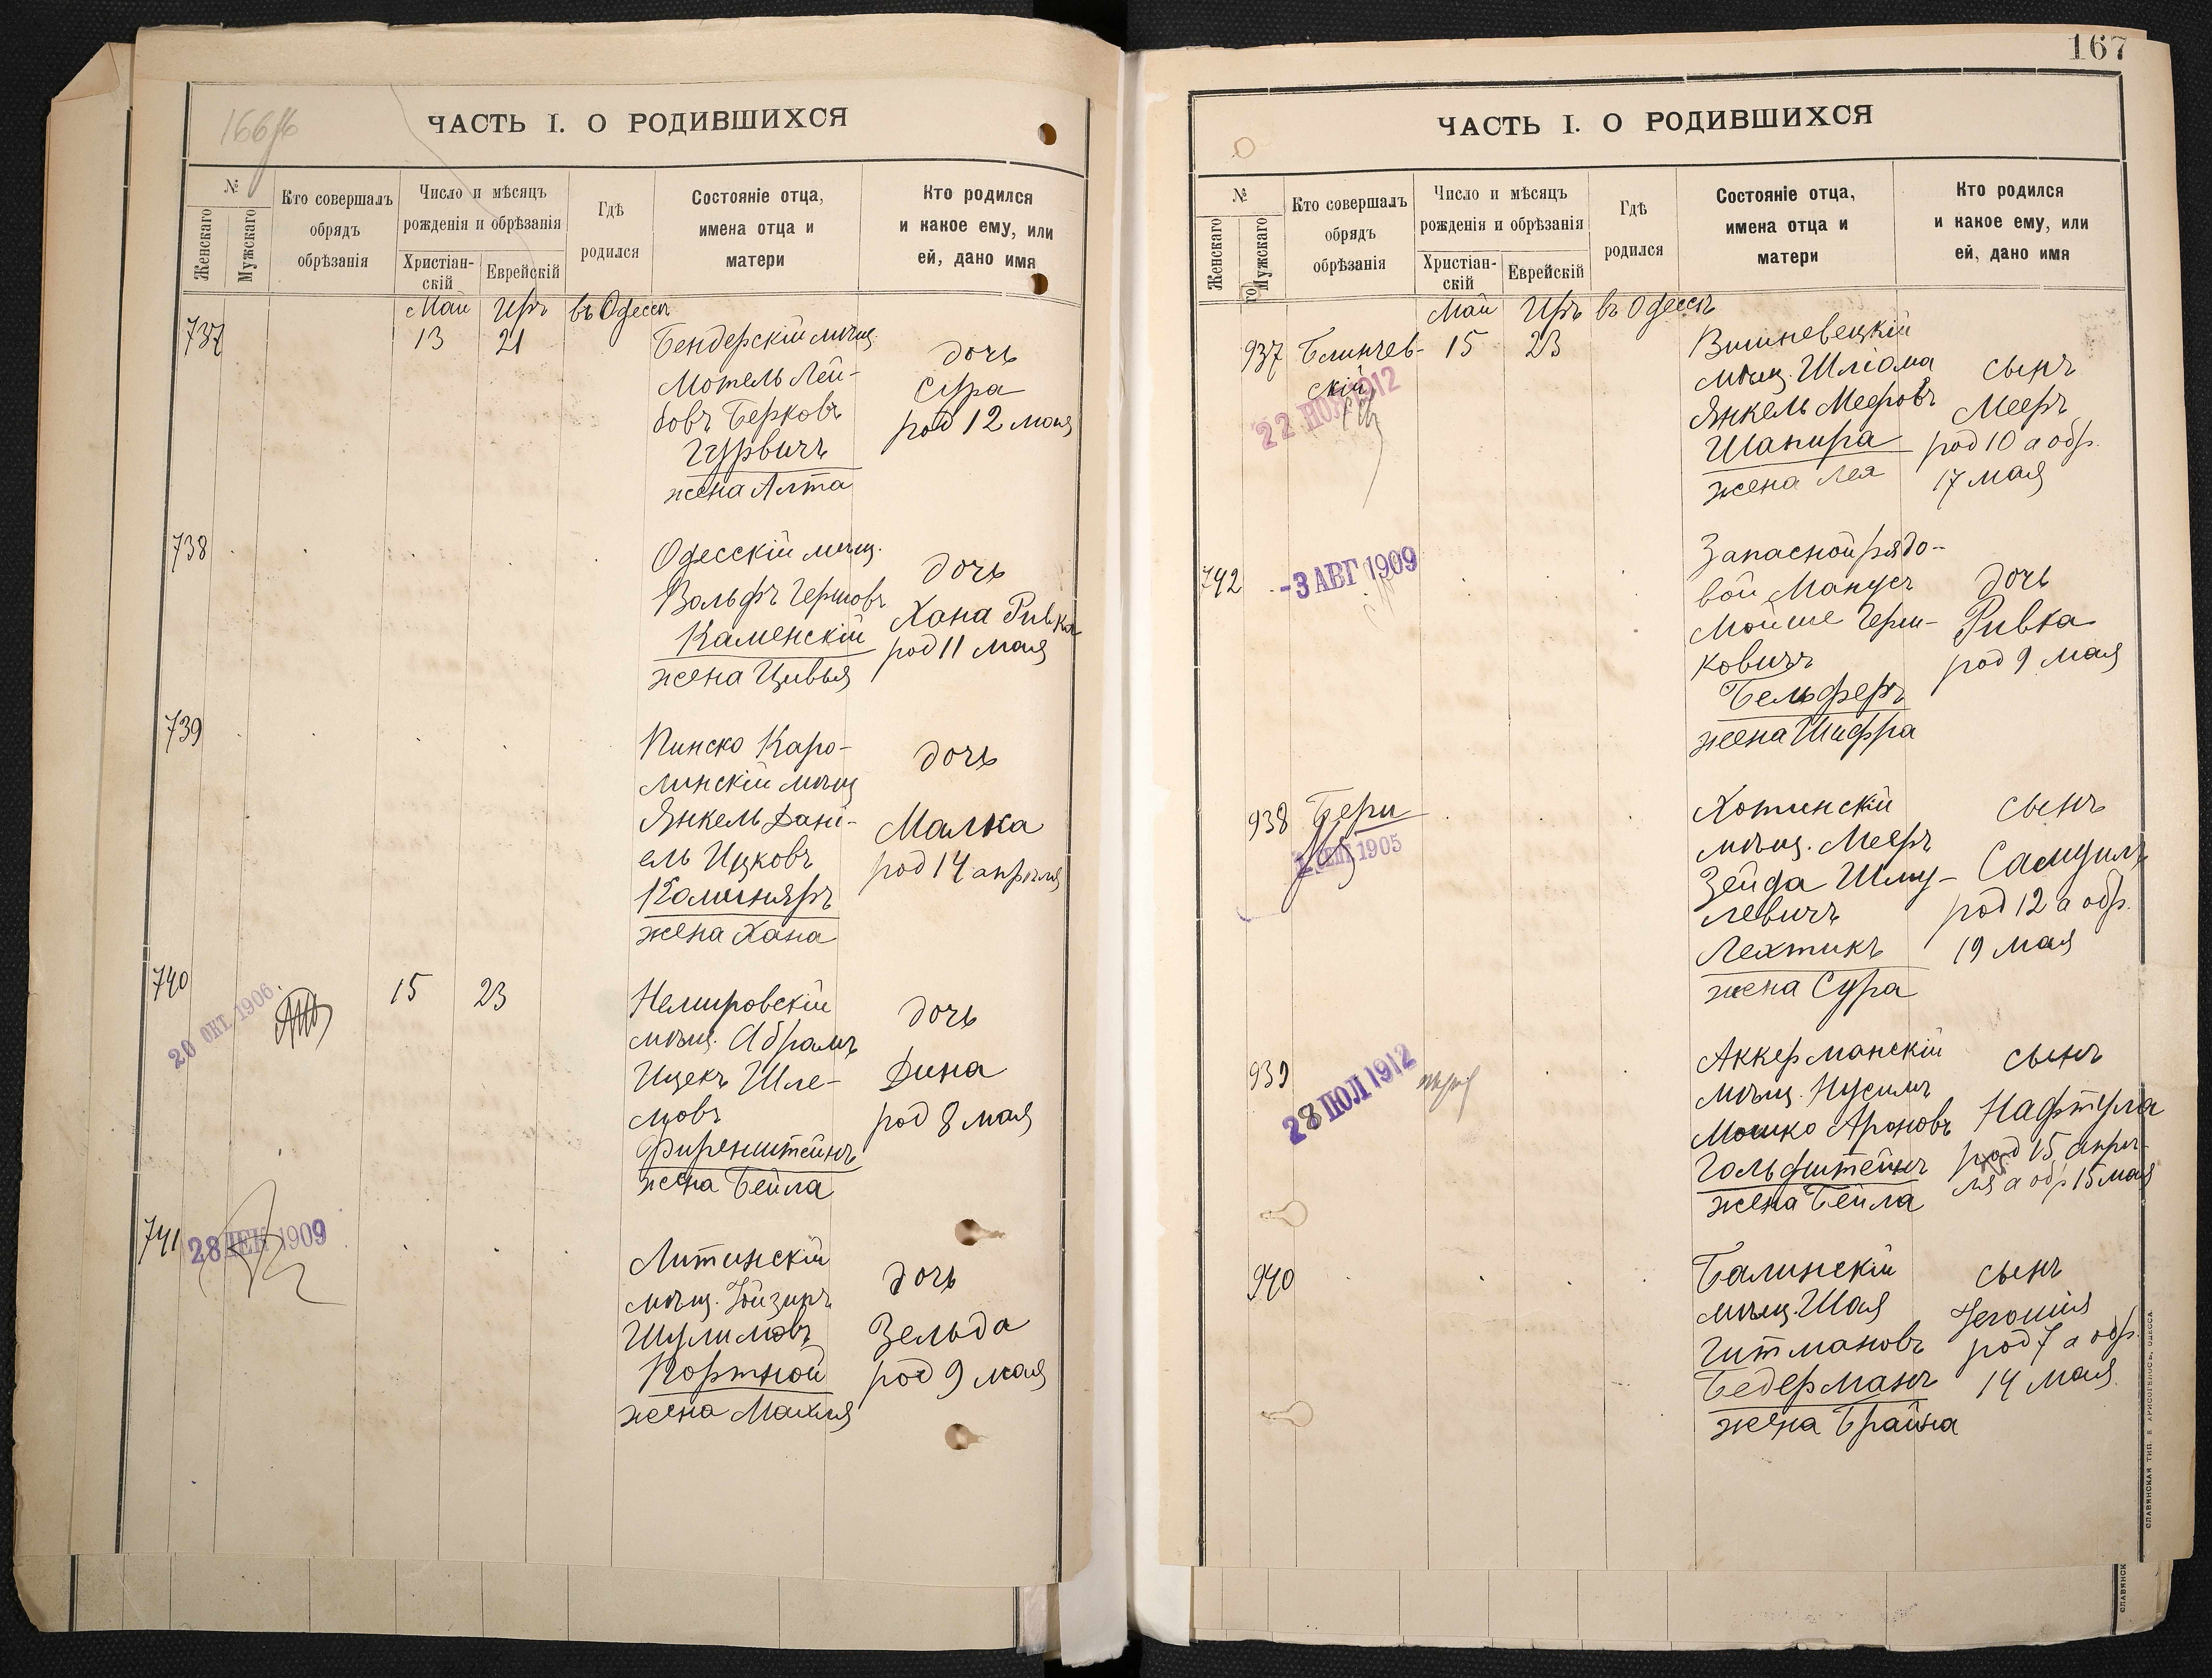 166 об
ЧАСТЬ I. О РОДИВШИХСЯ
№
Женскаго
Мужскаго
Кто совершалъ
обрядъ
обрѣзанія
Число и мѣсяцъ
рожденія и обрѣзанія
Христіан-
скій
Еврейскій
Гдѣ
родился
Состояніе отца,
имена отца и
матери
Кто родился
и какое ему, или
ей, дано имя
Май Иръ въ Одессѣ
737
13 21
Бендерскій мѣщ.
Мотель Лей-
бовъ Берковъ
Гурвичъ
жена Алта
дочь
Сура
род 12 мая
738
Одесскій мѣщ.
Вольфъ Гершовъ
Каменскій
жена Цивья
дочь
Хана Ривка
род 11 мая
739
Пинско Каро-
линскій мѣщ
Янкель Дані-
ель Ицковъ
жена Хана
дочь
Малка
род 14 апрѣля
740
20 ОКТ. 1906
15 23
Немировскій
мѣщ. Абрамъ
Ицекъ Шле-
мовъ
Фиренштейнъ
жена Бейла
дочь
Дина
род 8 мая
741
28 ДЕК 1909
Литинскій
мѣщ.
Шулимовъ
Портной
жена Махля
дочь
Зельда
род 9 мая
167
ЧАСТЬ I. О РОДИВШИХСЯ
№
Женскаго
Мужскаго
Кто совершалъ
обрядъ
обрѣзанія
Число и мѣсяцъ
рожденія и обрѣзанія
Христіан-
скій
Еврейскій
Гдѣ
родился
Состояніе отца,
имена отца и
матери
Кто родился
и какое ему, или
ей, дано имя
Май Иръ въ Одессѣ
937
Блинчев-
скій
22 НОЯ 1912
15 23
Вишневецкій
мѣщ. Шліома
Янкель Мееровъ
Шапира
жена Лея
сынъ
Мееръ
род 10 а обр.
17 мая
742
-3 АВГ 1909
Запасной рядо-
вой Манусъ
Мойше Герш-
ковичъ
Бельферъ
жена Шифра
дочь
Ривка
род 9 мая
938
Бери
1905
Хотинскій
мѣщ. Мееръ
Зейда Шму-
левичъ
Лехтикъ
жена Сура
сынъ
Самуилъ
род 12 а обр.
19 мая
939
28 ИЮЛ 1912
Аккерманскій
мѣщ. Нусимъ
Мошко Ароновъ
Гольдштейнъ
жена Бейла
сынъ
Нафтула
род 15 апрѣ-
ля а обр 15 мая
940
Балинскій
мѣщ. Шая
Гитмановъ
Бедерманъ
жена Брайна
сынъ
род 7 а обр.
14 мая
СЛАВЯНСКАЯ ТИП. Е. ХРИСОГЕЛОСЪ, ОДЕССА
СЛАВЯНСК